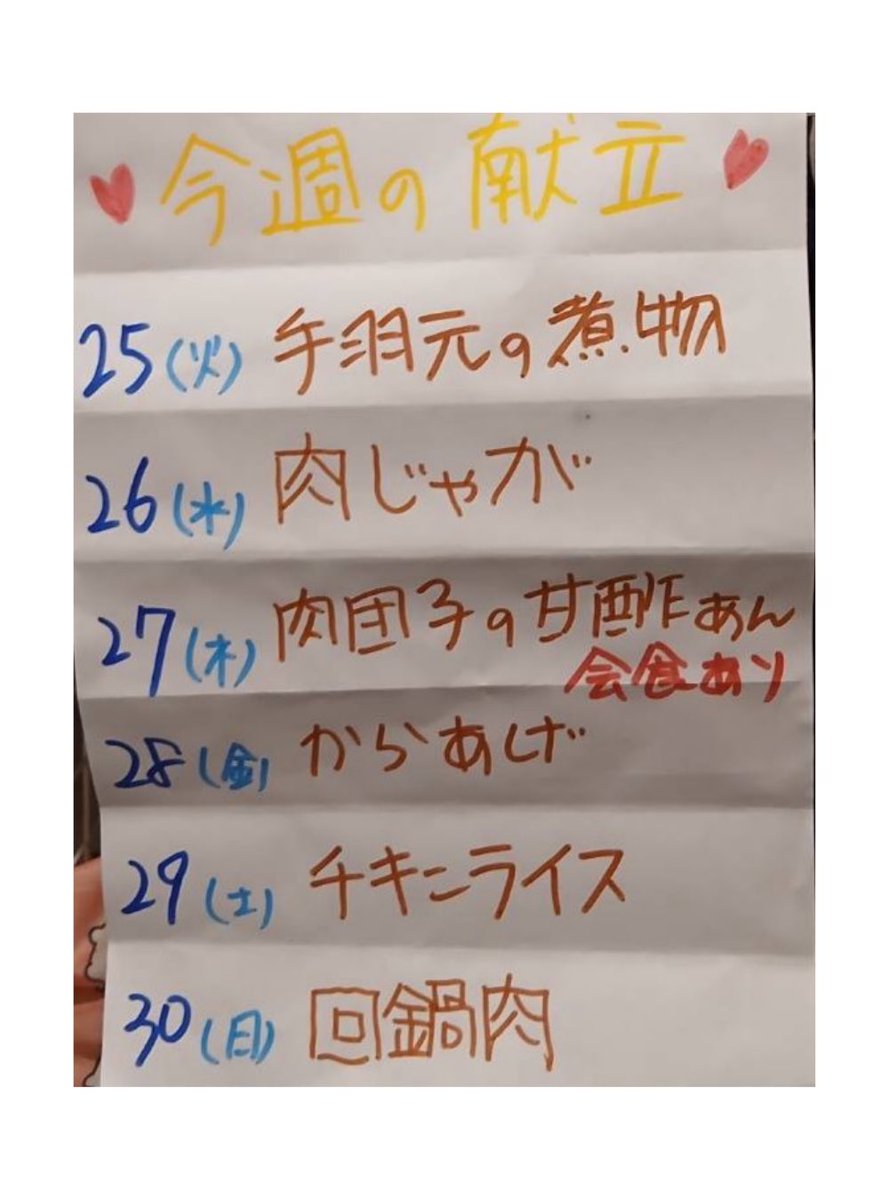 ♥今週の献立♥
25(火) 手羽元の煮物
26(水) 肉じゃが
27(木) 肉団子の甘酢あん
会食あり
28(金) からあげ
29(土) チキンライス
30(日) 回鍋肉